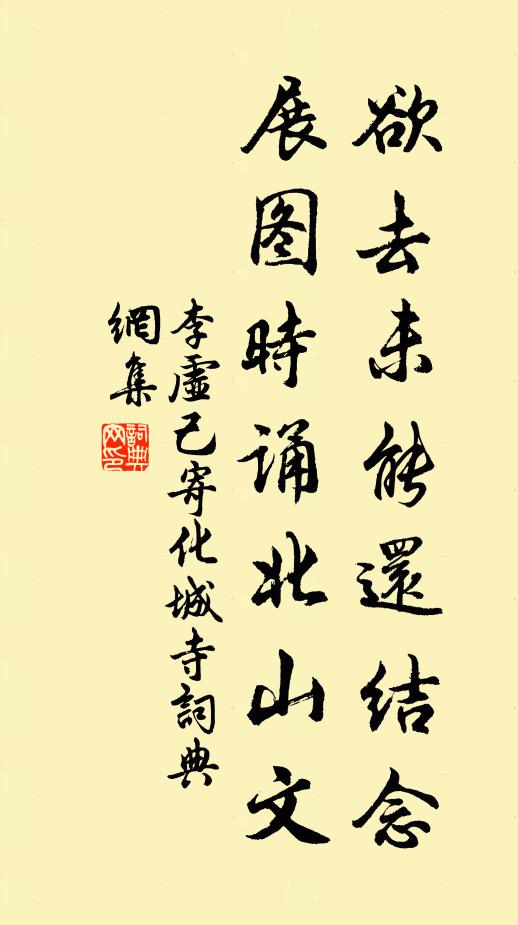 欲去未能還结念
展图時诵北山文
李虛己寄化城寺詞典
網集
詞典
网印